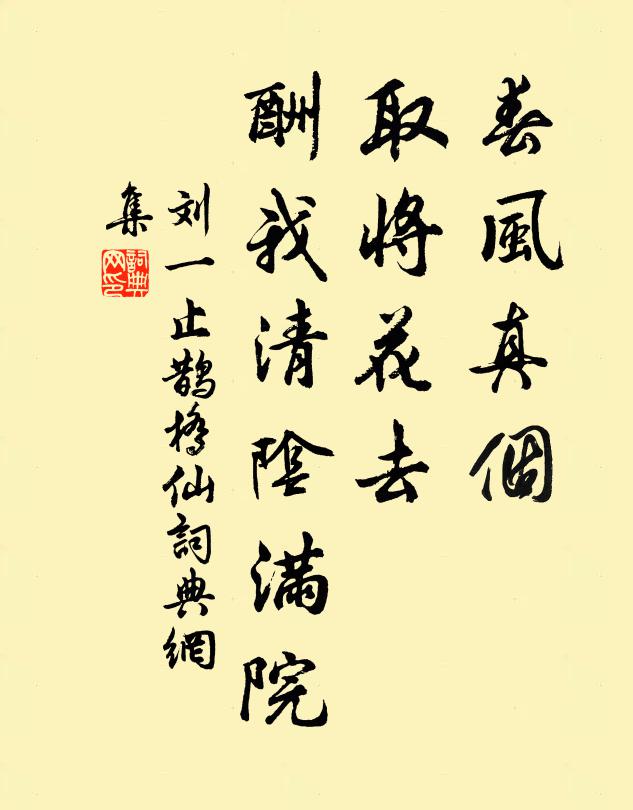 春風真個
取將花去
酬我清陰滿院
刘一止鵲橋仙詞典網
集
詞典
网印